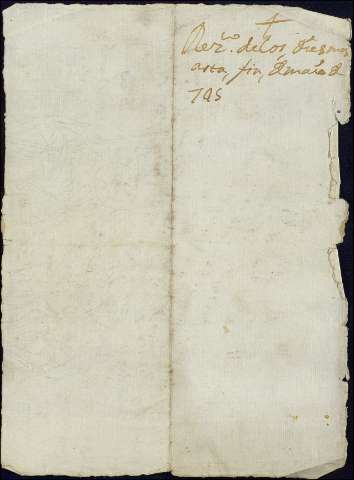 +
Rezo. de los diezmos
asta, fin, de maio d
795